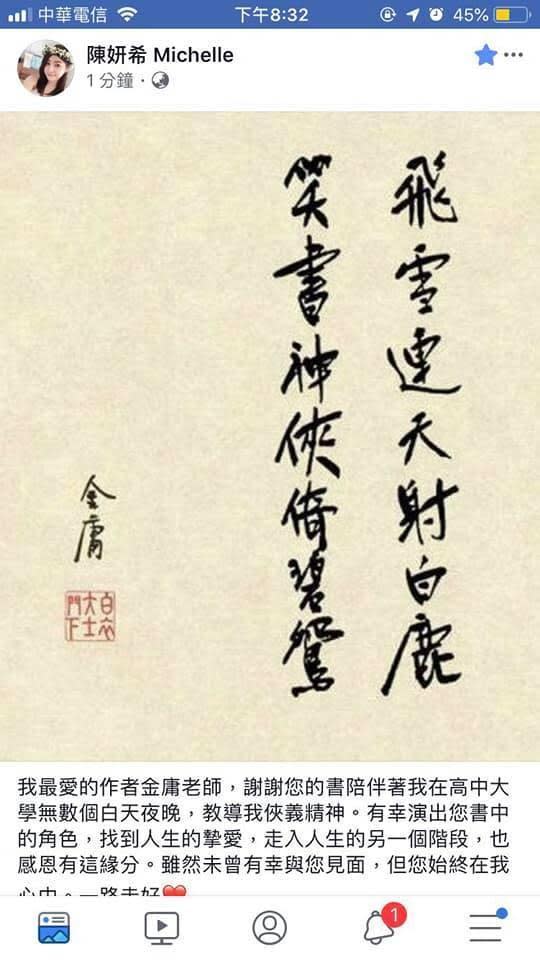 中華電信
下午8:32
45%
陳妍希 Michelle
1 分鐘 ·
飛雪連天射白鹿
笑書神俠倚碧鴛
金庸
白衣
大士
門下
我最愛的作者金庸老師，謝謝您的書陪伴著我在高中大
學無數個白天夜晚，教導我俠義精神。有幸演出您書中
的角色，找到人生的摯愛，走入人生的另一個階段，也
感恩有這緣分。雖然未曾有幸與您見面，但您始終在我
心中。一路走好❤️
1